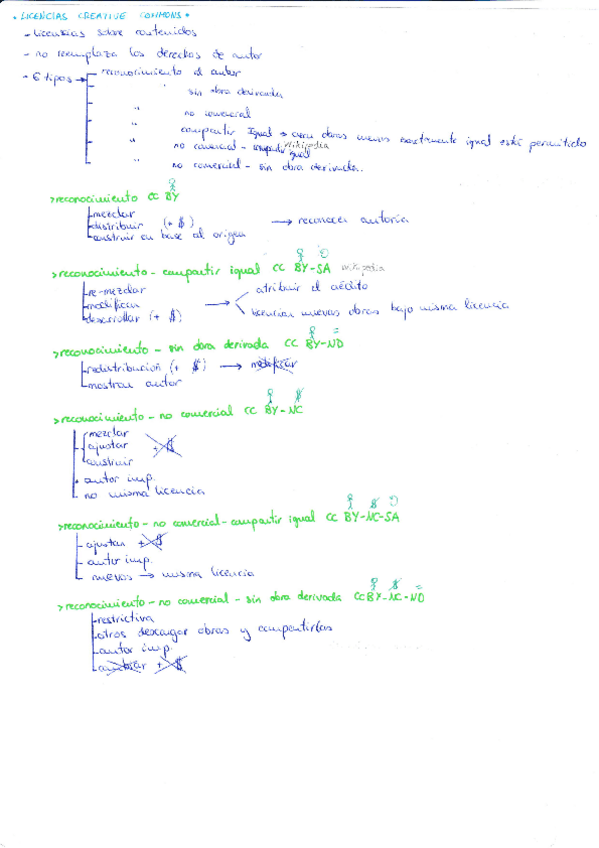 • LICENCIAS CREATIVE COMMONS •
- licencias sobre contenidos
- no reemplaza los derechos de autor
- 6 tipos → reconocimiento al autor
" sin obra derivada
" no comercial
" compartir Igual → crear obras nuevas exactamente igual está permitido
" no comercial - compartir igual wikipedia
" no comercial - sin obra derivada.
>reconocimiento CC BY
mezclar
distribuir (+ $) → reconocer autoría
construir en base al origen
>reconocimiento - compartir igual CC BY-SA wikipedia
re-mezclar
modificar → atribuir el crédito
desarrollar (+ $) licenciar nuevas obras bajo misma licencia
>reconocimiento - sin obra derivada CC BY-ND
redistribución (+ $) → modificar
mostrar autor
>reconocimiento - no comercial CC BY-NC
mezclar
ajustar + $
construir
autor imp.
no misma licencia
>reconocimiento - no comercial - compartir igual CC BY-NC-SA
ajustar + $
autor imp.
nuevos → misma licencia
>reconocimiento - no comercial - sin obra derivada CC BY-NC-ND
restrictiva
otros descargar obras y compartirlas
autor imp.
cambiar + $